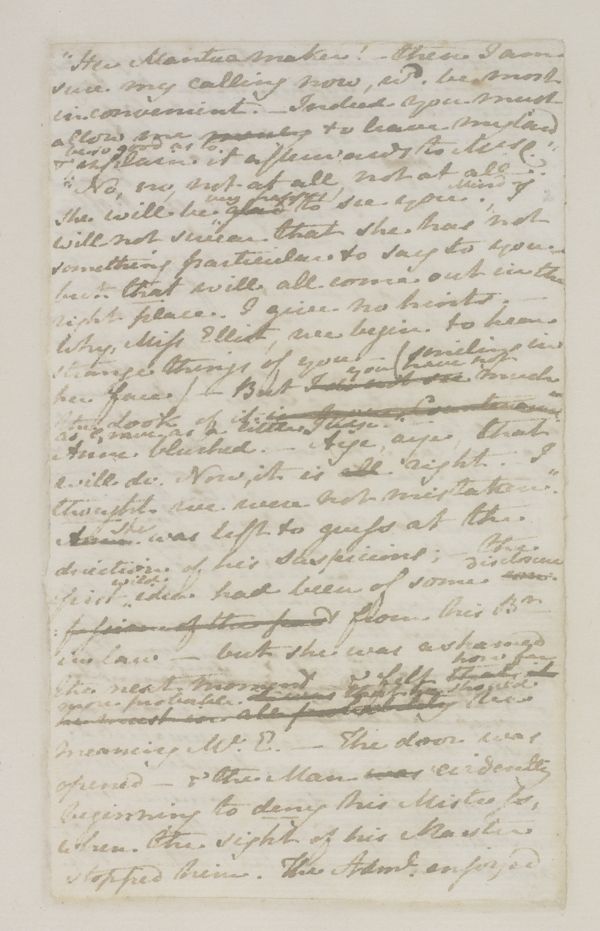 "Her Mantua maker! – then I am
sure my calling now, wd. be most
inconvenient. – Indeed you must
allow me to leave my Card
be so good as to
& explain it afterwards to Mrs. C."
"No, no, not at all, not at all.
very happy
She will be glad to see you. Mind – I
will not swear that she has not
something particular to say to you –
but that will all come out in the
right place. I give no hints. –
Why, Miss Elliot, we begin to hear
strange things of you – (smiling in
you have not
her face) – But I do not see much
the Look of it
as Grave as a little Judge."
Anne blushed. – "Aye, aye, that
will do. Now, it is all right. I
thought we were not mistaken."
She
Anne was left to guess at the
direction of his suspicions; – the
wild disclosure
first idea had been of some
from his Br.
in law – but she was ashamed
how far
the next moment – & felt that it
more probable should
he must in all probability be
meaning Mr. E. – The door was
opened – & the Man was evidently
beginning to deny his Mistress,
when the sight of his Master
stopped him. The Adml. enjoyed